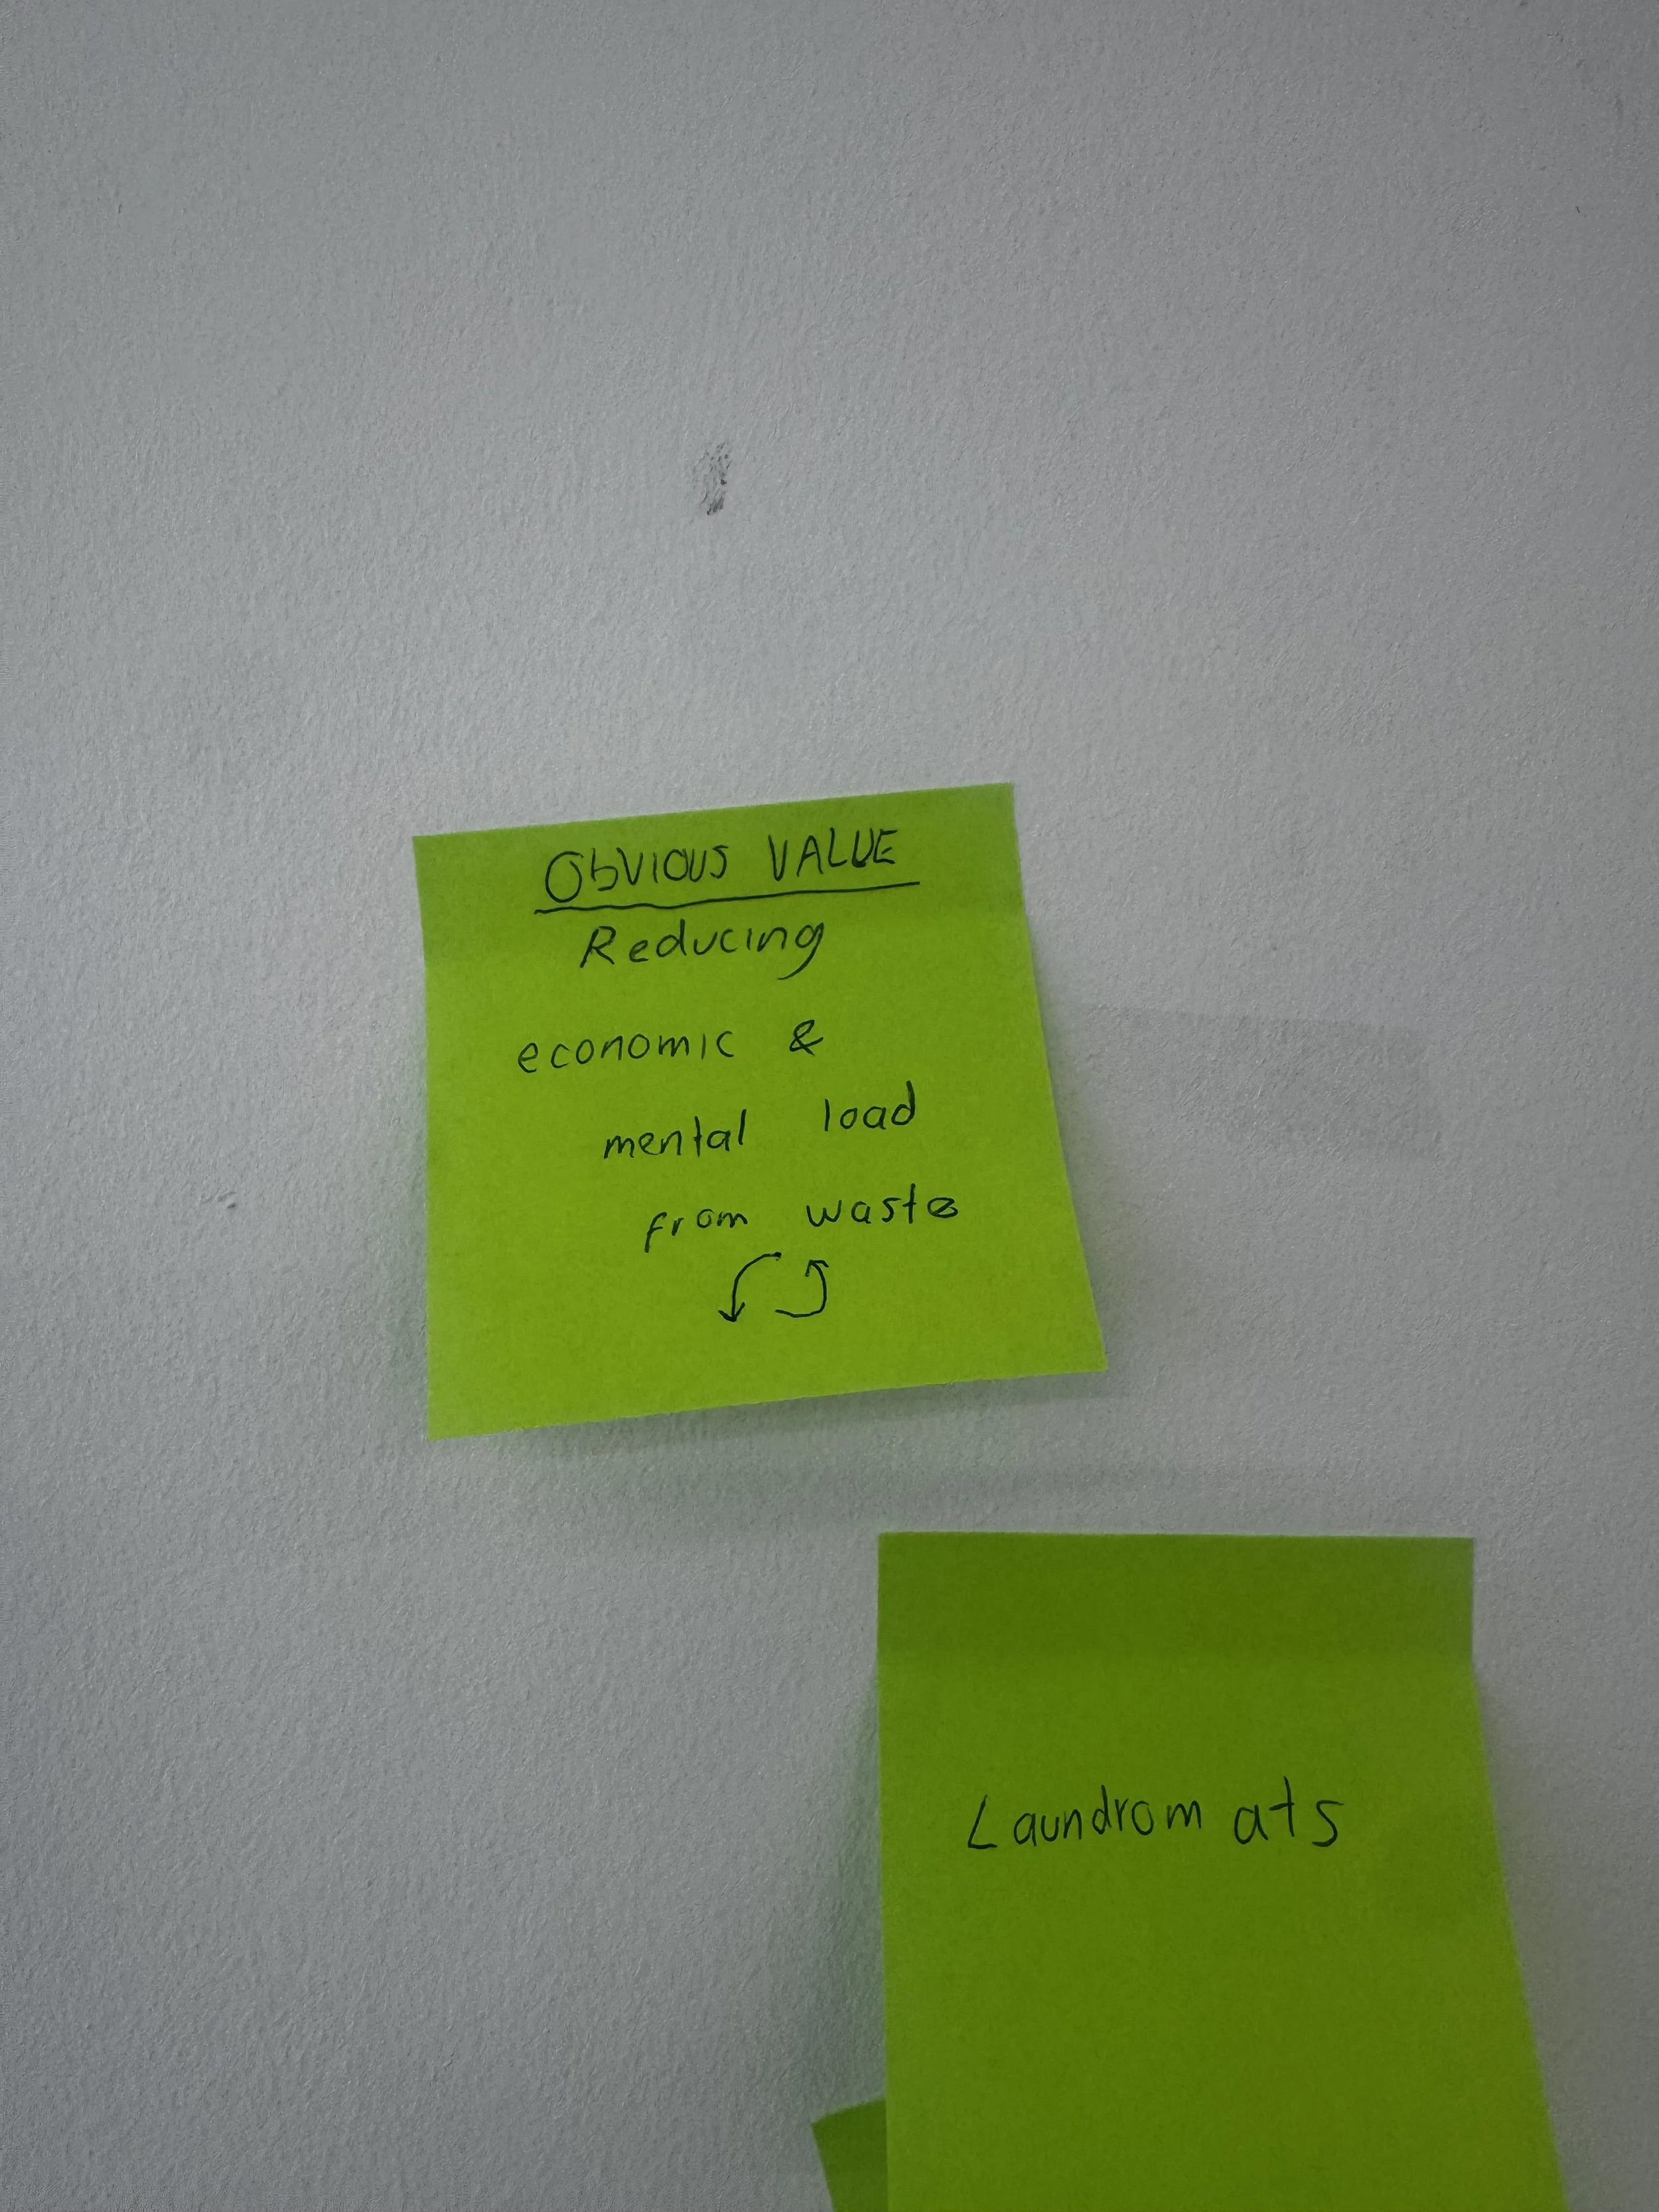 ObVIOUS VALUE
Reducing
economic &
mental load
from waste
Laundromats